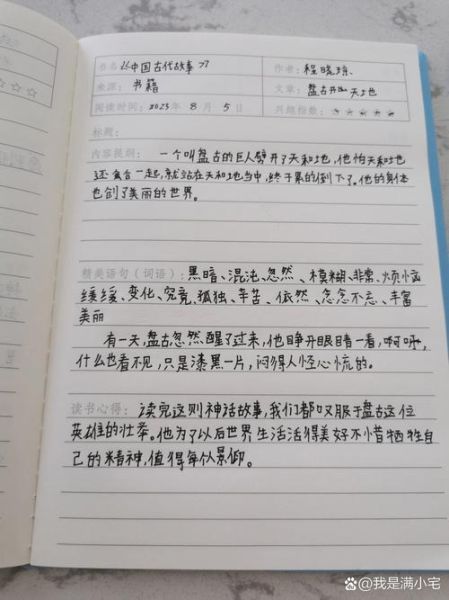 书名:《中国古代故事》 作者:程晓琼
来源:书籍 文章:盘古开天地
阅读时间:2023年8月5日 兴趣指数:☆☆☆☆☆
标题:
内容提纲:一个叫盘古的巨人劈开了天和地,他怕天和地
还会合一起,就站在天和地当中,终于累的倒下了。他的身体
也创了美丽的世界。
精美语句(词语):黑暗、混沌、忽然、模糊、非常、烦恼
缓缓、变化、究竟、孤独、辛苦、依然、念念不忘、丰富
美丽
有一天,盘古忽然醒了过来,他睁开眼睛一看,啊呀,
什么也看不见,只是漆黑一片,闷得人怪心慌的。
读书心得:读完这则神话故事,我们都叹服于盘古这位
英雄的壮举。他为了以后世界生活活得美好不惜牺牲自
己的精神,值得每似景仰。
知乎 @我是满小宅